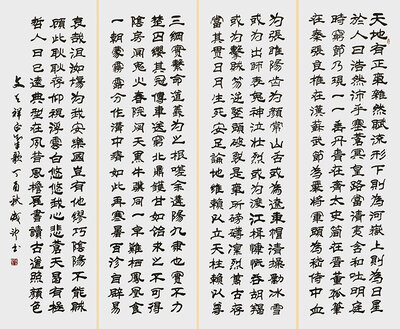 天地有正氣雜然賦流形下則為河嶽上則為日星
於人曰浩然沛乎塞蒼冥皇路當清夷含和吐明庭
時窮節乃現一一垂丹青在齊太史簡在晉董狐筆
在秦張良椎在漢蘇武節為嚴將軍頭為嵇侍中血
為張睢陽齒為顏常山舌或為遼東帽清操勵冰雪
或為出師表鬼神泣壯烈或為渡江楫慷慨吞胡羯
或為擊賊笏逆豎頭破裂是氣所磅礴凜烈萬古存
當其貫日月生死安足論地維賴以立天柱賴以尊
三綱實繫命道義為之根嗟余遘陽九隸也實不力
楚囚纓其冠傳車送窮北鼎鑊甘如飴求之不可得
陰房闃鬼火春院閟天黑牛驥同一皂雞棲鳳凰食
一朝蒙霧露分作溝中瘠如此再寒暑百沴自辟易
哀哉沮洳場為我安樂國豈有他繆巧陰陽不能賊
顧此耿耿存仰視浮雲白悠悠我心悲蒼天曷有極
哲人日已遠典型在夙昔風檐展書讀古道照顏色
文天祥正氣歌丁酉秋書